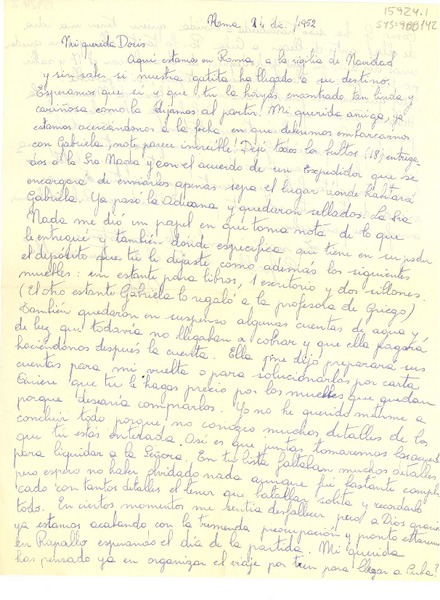 15924.1
SYS-988142
Roma, 24 dic. 1952
Mi querida Doris:
Aquí estamos en Roma, a la vigilia de Navidad
y sin saber si nuestra gatita ha llegado a su destino.
Esperamos que sí y que tu la hayas encontrado tan linda y
cariñosa como la dejamos al partir. Mi querida amiga, ya
estamos acercandonos a la fecha en que debemos embarcarnos
con Gabriela; ¿note parece increíble? Dejé todos los bultos (18) entrega
dos a la Sra Nada y con el acuerdo de un expedidor que se
encargará de enviarlos apenas sepa el lugar donde habitará
Gabriela. Ya pasó la Aduana y quedaron sellados. La Sra
Nada me dió un papel en que toma nota de lo que
le entregué y también donde especifica que tiene en su poder
el depósito que tu le dejaste como además los siguientes
muebles: un estante para libros, 1 escritorio y dos sillones.
(El otro estante Gabriela lo regaló a la profesora de Griego)
También quedaron en suspenso algunas cuentas de agua y
de luz que todavía no llegaban a cobrar y que ella pagaría
haciéndonos después la cuenta. Ella me dijo preparará sus
cuentas para mi vuelta o para solucionarlas por carta
Quiere que tu le hagas precio por los muebles que quedan
porque desearía comprarlos. Yo no he querido meterme a
concluir todo, porque no conozco muchos detalles de los
que tu estás enterada. Así es que juntas tomaremos los acuerdos
para liquidar a la Signora. En tu lista faltaban muchos detalles
pero espero no haber olvidado nada aunque fué bastante compli
cado con tantos detalles el tener que batallar solita y recordarlo
todo. En ciertos momentos me sentía desfallecer pero a Dios gracias
ya estamos acabando con la tremenda preocupación y pronto estaremos
en Rapallo esperando el día de la partida. Mi querida
has pensado ya en organizar el viaje por tren para llegar a Cuba?